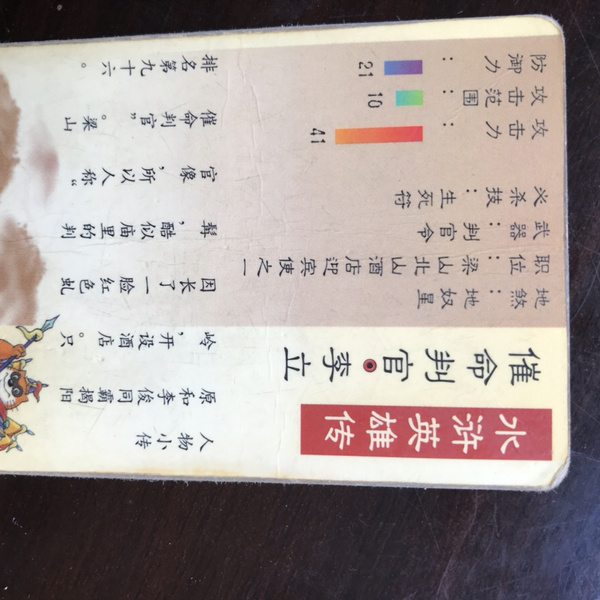 水浒英雄传
催命判官·李立
地煞：地奴星
职位：梁山北山酒店迎宾使之一
武器：判官令
必杀技：生死符
攻击力：41
攻击范围：10
防御力：21
人物小传
原和李俊同霸揭阳
岭，开设酒店。只
因长了一脸红色虬
髯，酷似庙里的判
官像，所以人称“
催命判官”。梁山
排名第九十六。